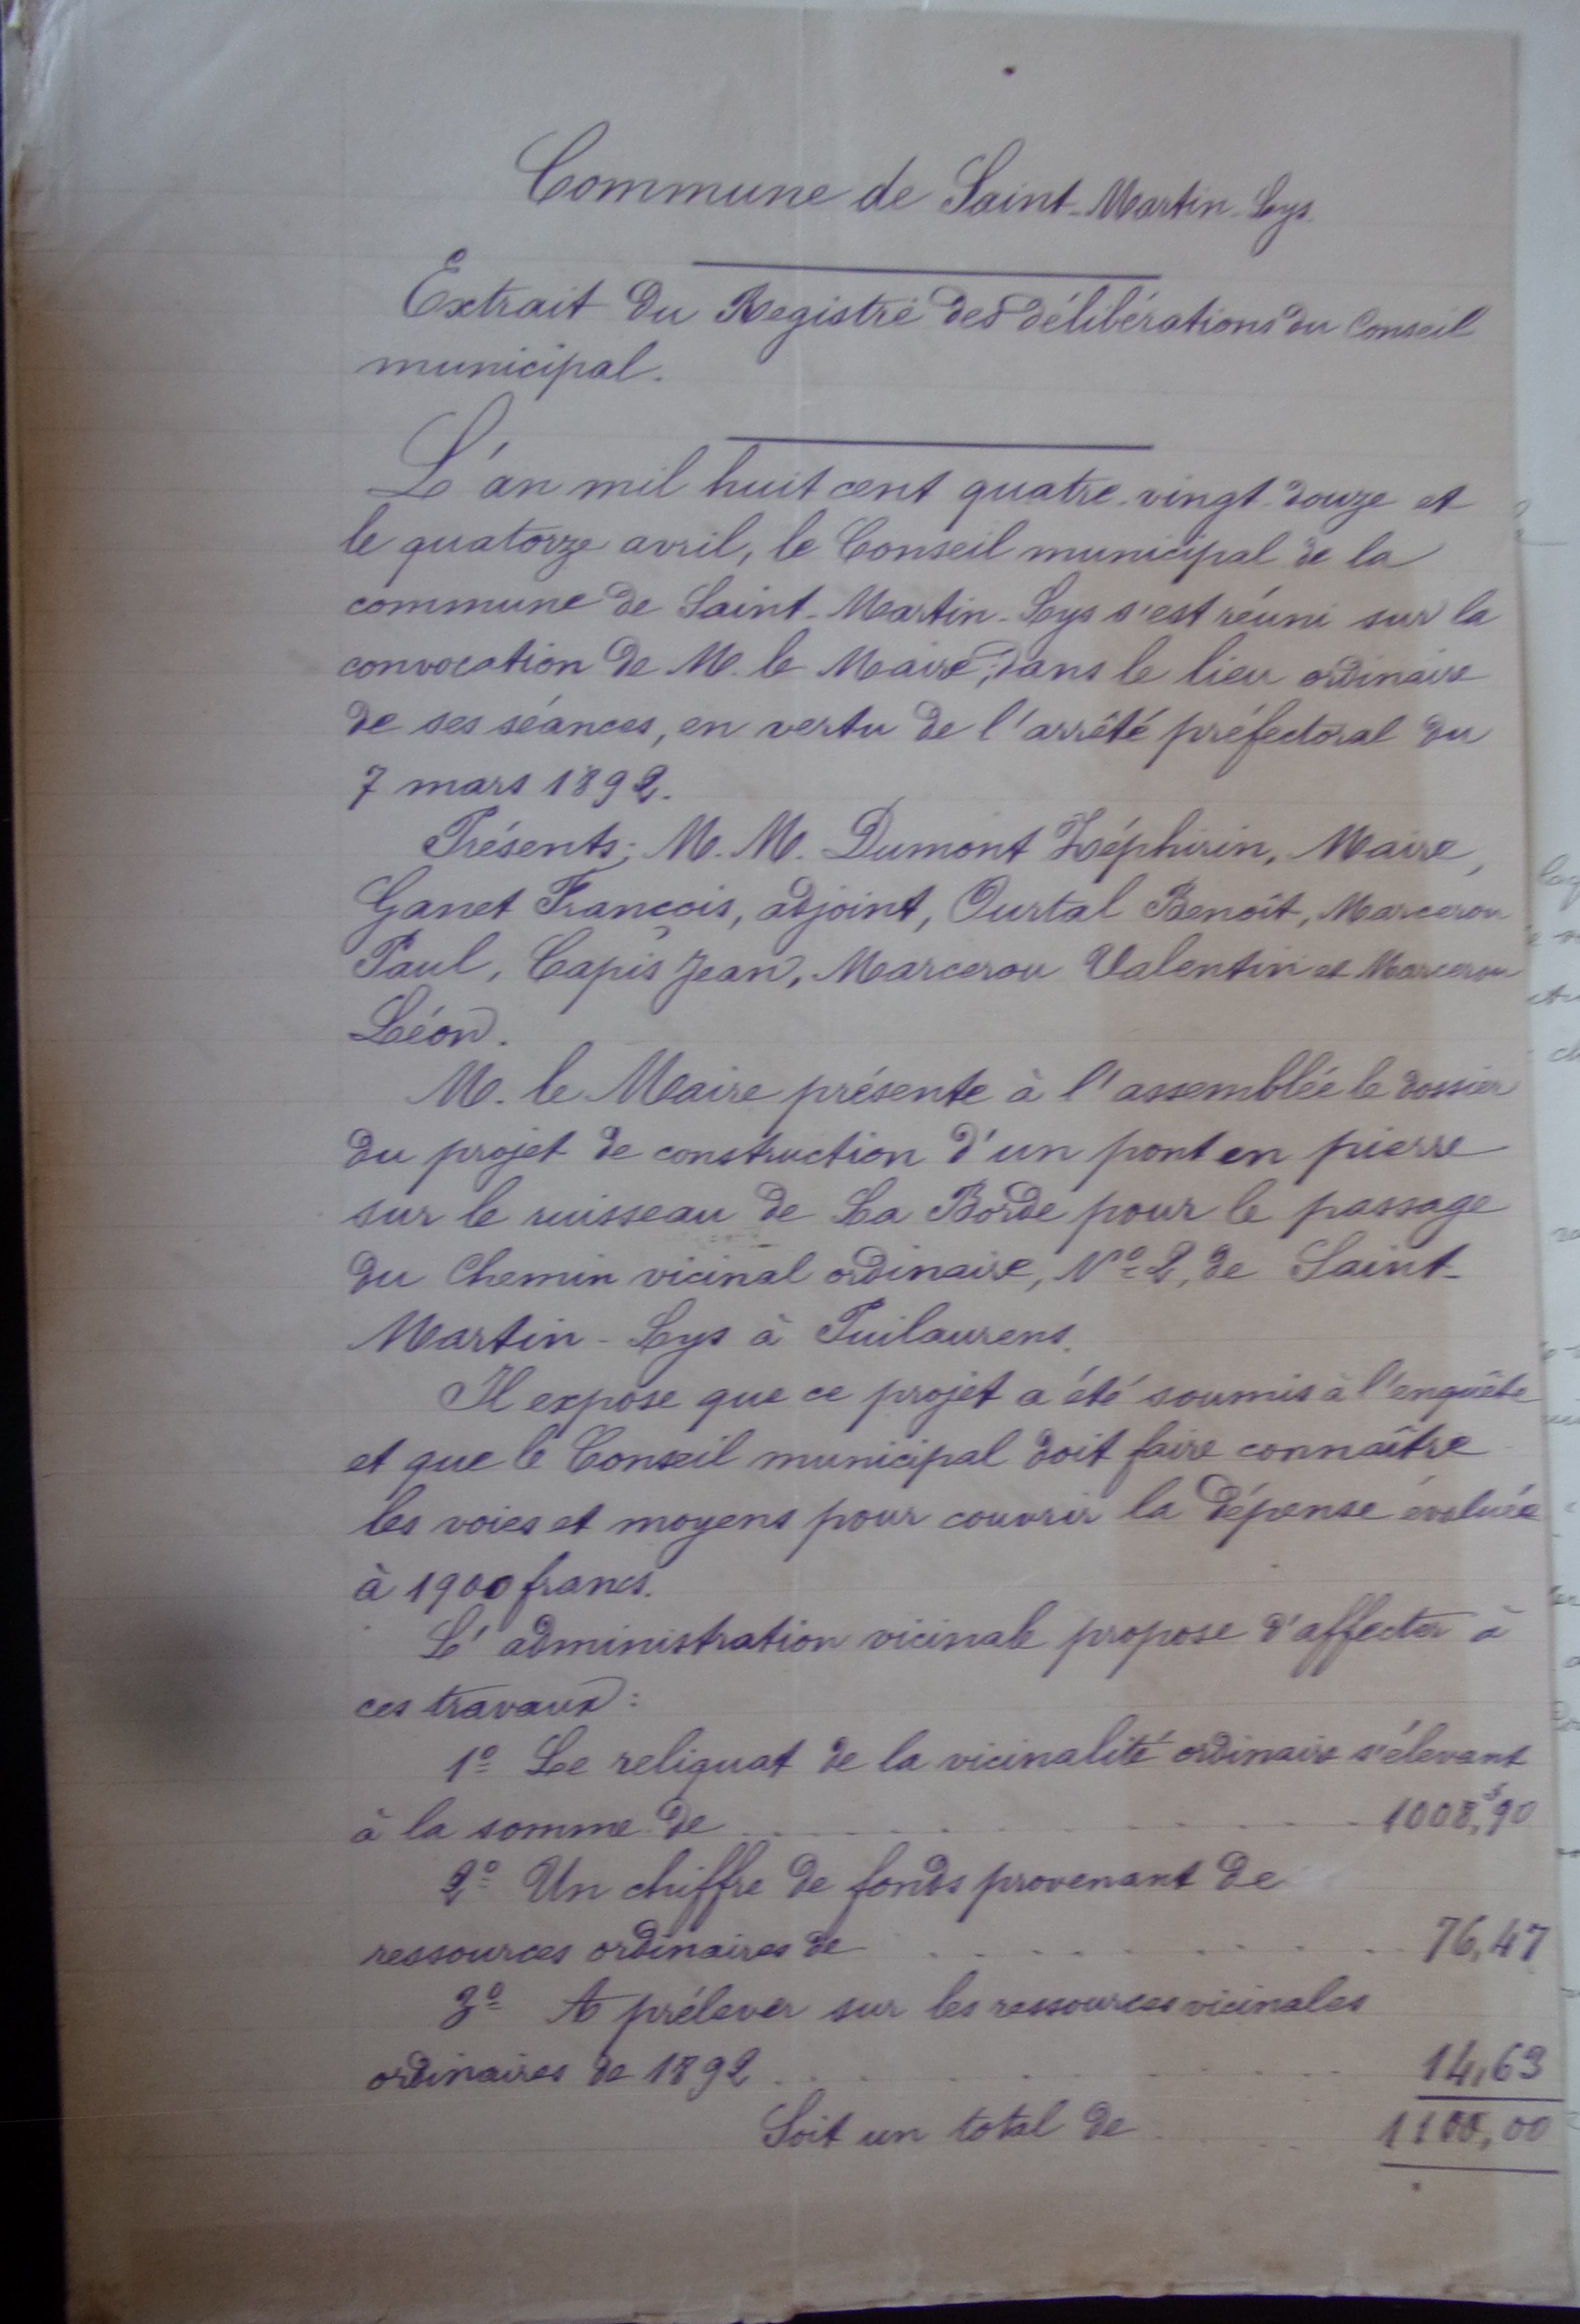 Commune de Saint-Martin-Lys
Extrait du Registre des délibérations du Conseil
municipal.
L'an mil huit cent quatre-vingt-douze et
le quatorze avril, le Conseil municipal de la
commune de Saint-Martin-Lys s'est réuni sur la
convocation de M. le Maire, dans le lieu ordinaire
de ses séances, en vertu de l'arrêté préfectoral du
7 mars 1892.
Présents; M.M. Dumont Zéphirin, Maire,
Ganet François, adjoint, Ourtal Benoît, Marcerou
Paul, Capis Jean, Marcerou Valentin et Marcerou
Léon.
M. le Maire présente à l'assemblée le dossier
du projet de construction d'un pont en pierre
sur le ruisseau de La Borde pour le passage
du Chemin vicinal ordinaire, Nº 2, de Saint-
Martin-Lys à Puilaurens.
Il expose que ce projet a été soumis à l'enquête
et que le Conseil municipal doit faire connaître
les voies et moyens pour couvrir la dépense évaluée
à 1900 francs.
L'administration vicinale propose d'affecter à
ces travaux:
1º Le reliquat de la vicinalité ordinaire s'élevant
à la somme de 1008,f90
2º Un chiffre de fonds provenant de
ressources ordinaires de 76,47
3º A prélever sur les ressources vicinales
ordinaires de 1892 14,63
Soit un total de 1100,00